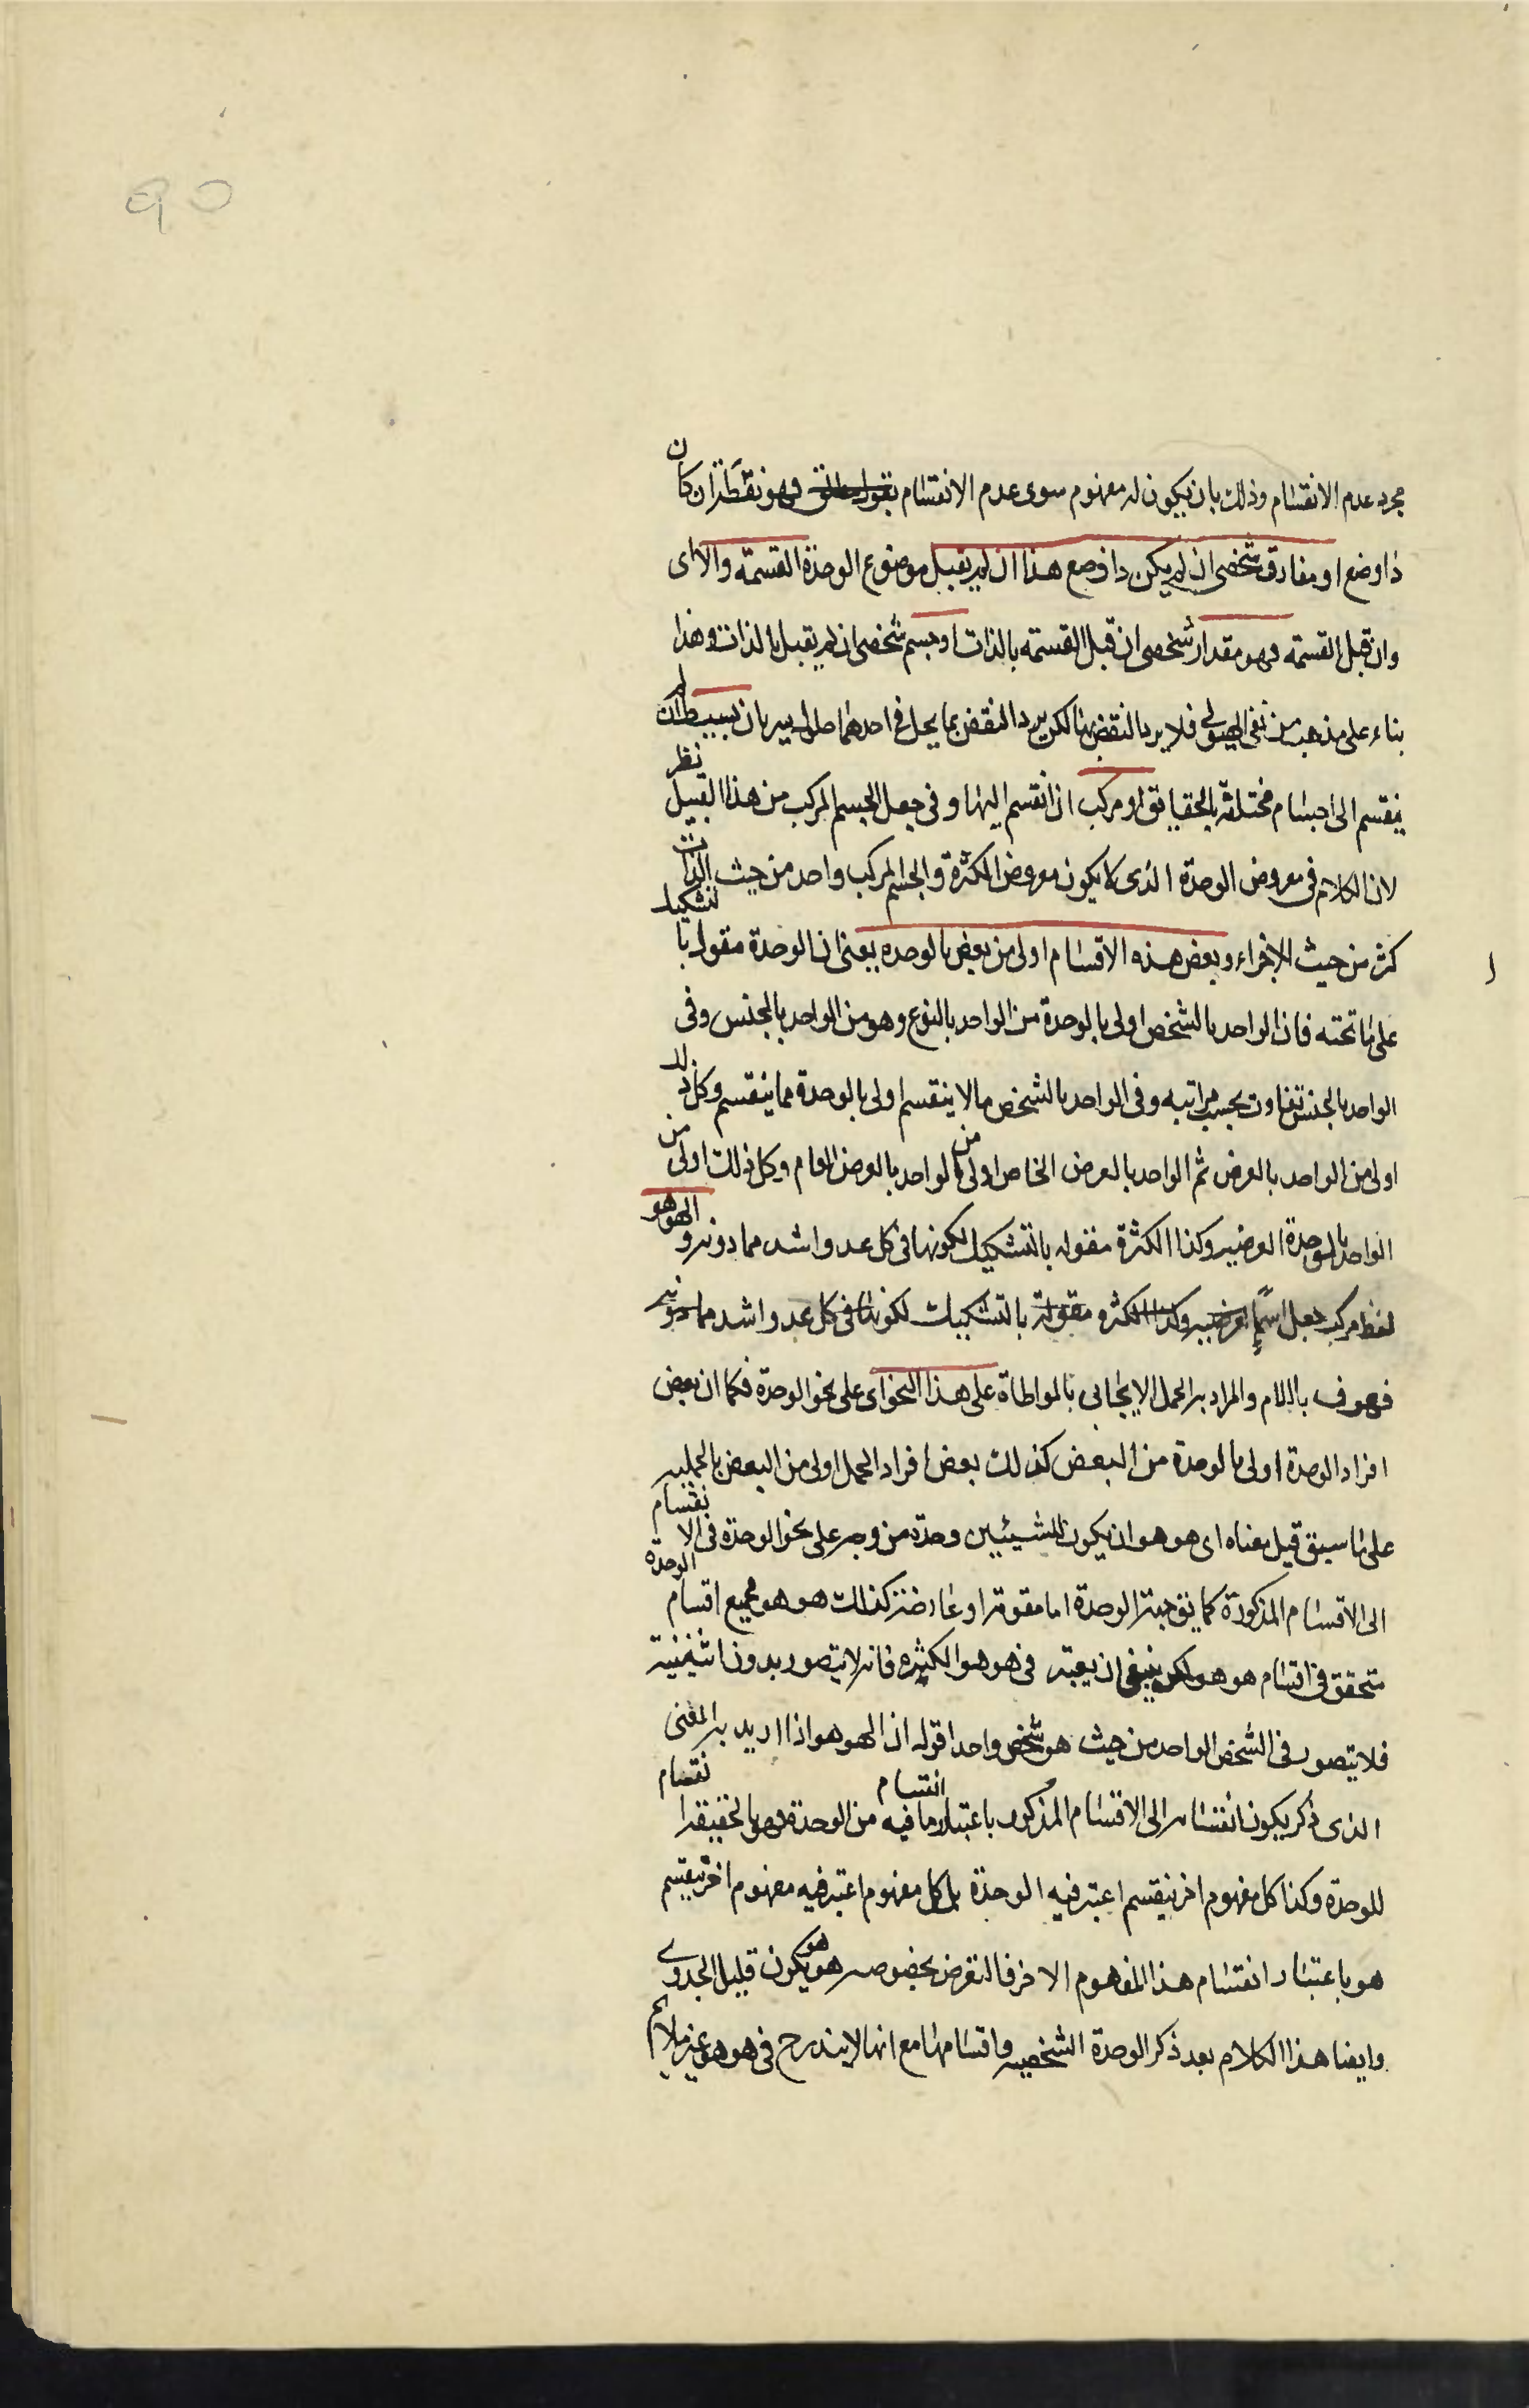 ٩٥
مجرد عدم الانقسام وذلك بان يكون له مفهوم سوى عدم الانقسام فهو نقطة ان كان
ذا وضع او مفارق شخصى ان لم يكن ذا وضع هذا ان لم يقبل موضوع الوحدة القسمة والا اى
وان قبل القسمة فهو مقدار شخصى ان قبل القسمة بالذات او جسم شخصى ان لم يقبل بالذات وهذا
بناء على مذهب من نفى الهيولى فلا يرد النقض بها لكن يرد النقض بما يحل فى احدهما حلول سريان بسيط ان لم
ينقسم الى اجسام مختلفة بالحقايق او مركب ان انقسم اليها وفى جعل الجسم المركب من هذا القبيل نظر
لان الكلام فى معروض الوحدة الذى لا يكون معروض الكثرة والجسم المركب واحد من حيث الذات
كثر من حيث الاجزاء وبعض هذه الاقسام اولى من بعض بالوحدة بمعنى ان الوحدة مقول بالتشكيك
على ما تحته فان الواحد بالشخص اولى بالوحدة من الواحد بالنوع وهو من الواحد بالجنس وفى
الواحد بالجنس تفاوت بحسب مراتبه وفى الواحد بالشخص ما لا ينقسم اولى بالوحدة مما ينقسم وكل ذلك
اولى من الواحد بالعرض ثم الواحد بالعرض الخاص اولى من الواحد بالعرض العام وكل ذلك اولى من
الواحد بالوحدة العرضيه وكذا الكثرة مقوله بالتشكيك لكونها فى كل عدد اشد مما دونه والهوهو
لفظ مركب جعل اسما العرضيه وكذا الكثره مقولة بالتشكيك لكونها فى كل عدد اشد مما دونه
فعرف باللام والمراد به الحمل الايجابى بالمواطاة على هذا النحو اى على نحو الوحدة فكما ان بعض
افراد الوحدة اولى بالوحدة من البعض كذلك بعض افراد الحمل اولى من البعض بالحمليه
على ما سبق قيل معناه اى هو هو ان يكون للشيئين وحدة من وجه على نحو الوحدة فى الانقسام
الى الاقسام المذكورة كما يق جهة الوحدة اما مقومة او عارضة كذلك هو هو فجميع اقسام الوحدة
متحقق فى اقسام هو هو لكن ينبغى ان يعتبر فى هو هو الكثره فانه لا يتصور بدون اثنينية
فلا يتصور فى الشخص الواحد من حيث هو شخص واحد اقول ان الهو هو اذا اريد به المعنى
الذى ذكر يكون انقسامه الى الاقسام المذكورة باعتبار انقسام ما فيه من الوحدة فهو بالحقيقة انقسام
للوحدة وكذا كل مفهوم اخر ينقسم اعتبر فيه الوحدة بل كل مفهوم اعتبر فيه مفهوم اخر ينقسم
هو باعتبار انقسام هذا المفهوم الاخر فالتعرض بخصوص هو هو يكون قليل الجدوى
وايضا هذا الكلام بعد ذكر الوحدة الشخصيه واقسامها مع انها لا يندرج فى هو هو غير ملايم